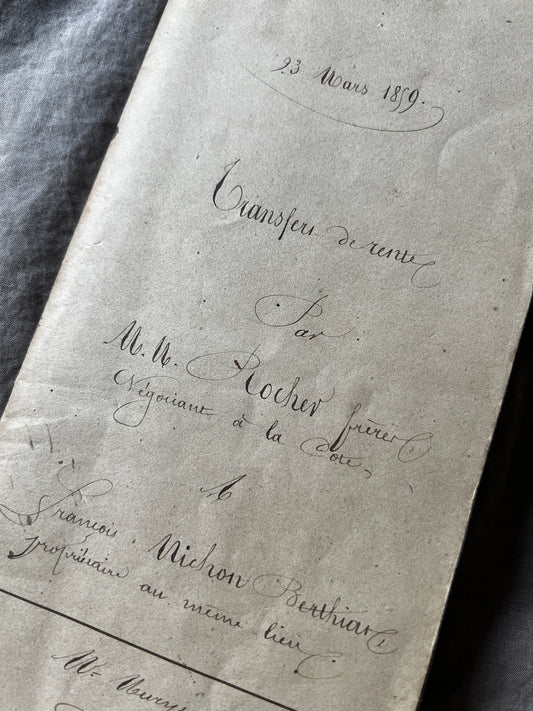 23 Mars 1859.
Transfert de rente
Par
M.M. Rocher frères
Négociant à la Côte,
A
François Nichon Berthiar
propriétaire au même lieu
Me